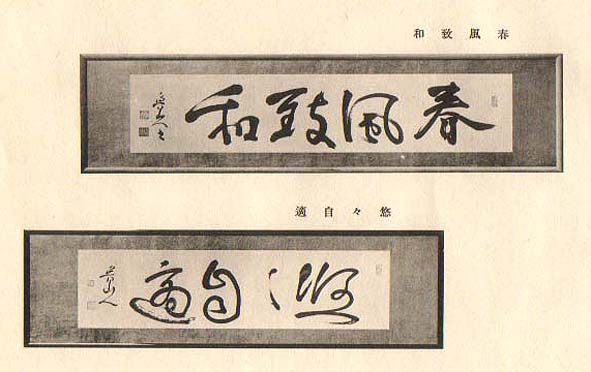 春風致和
春風致和
悠々自適
悠々自適